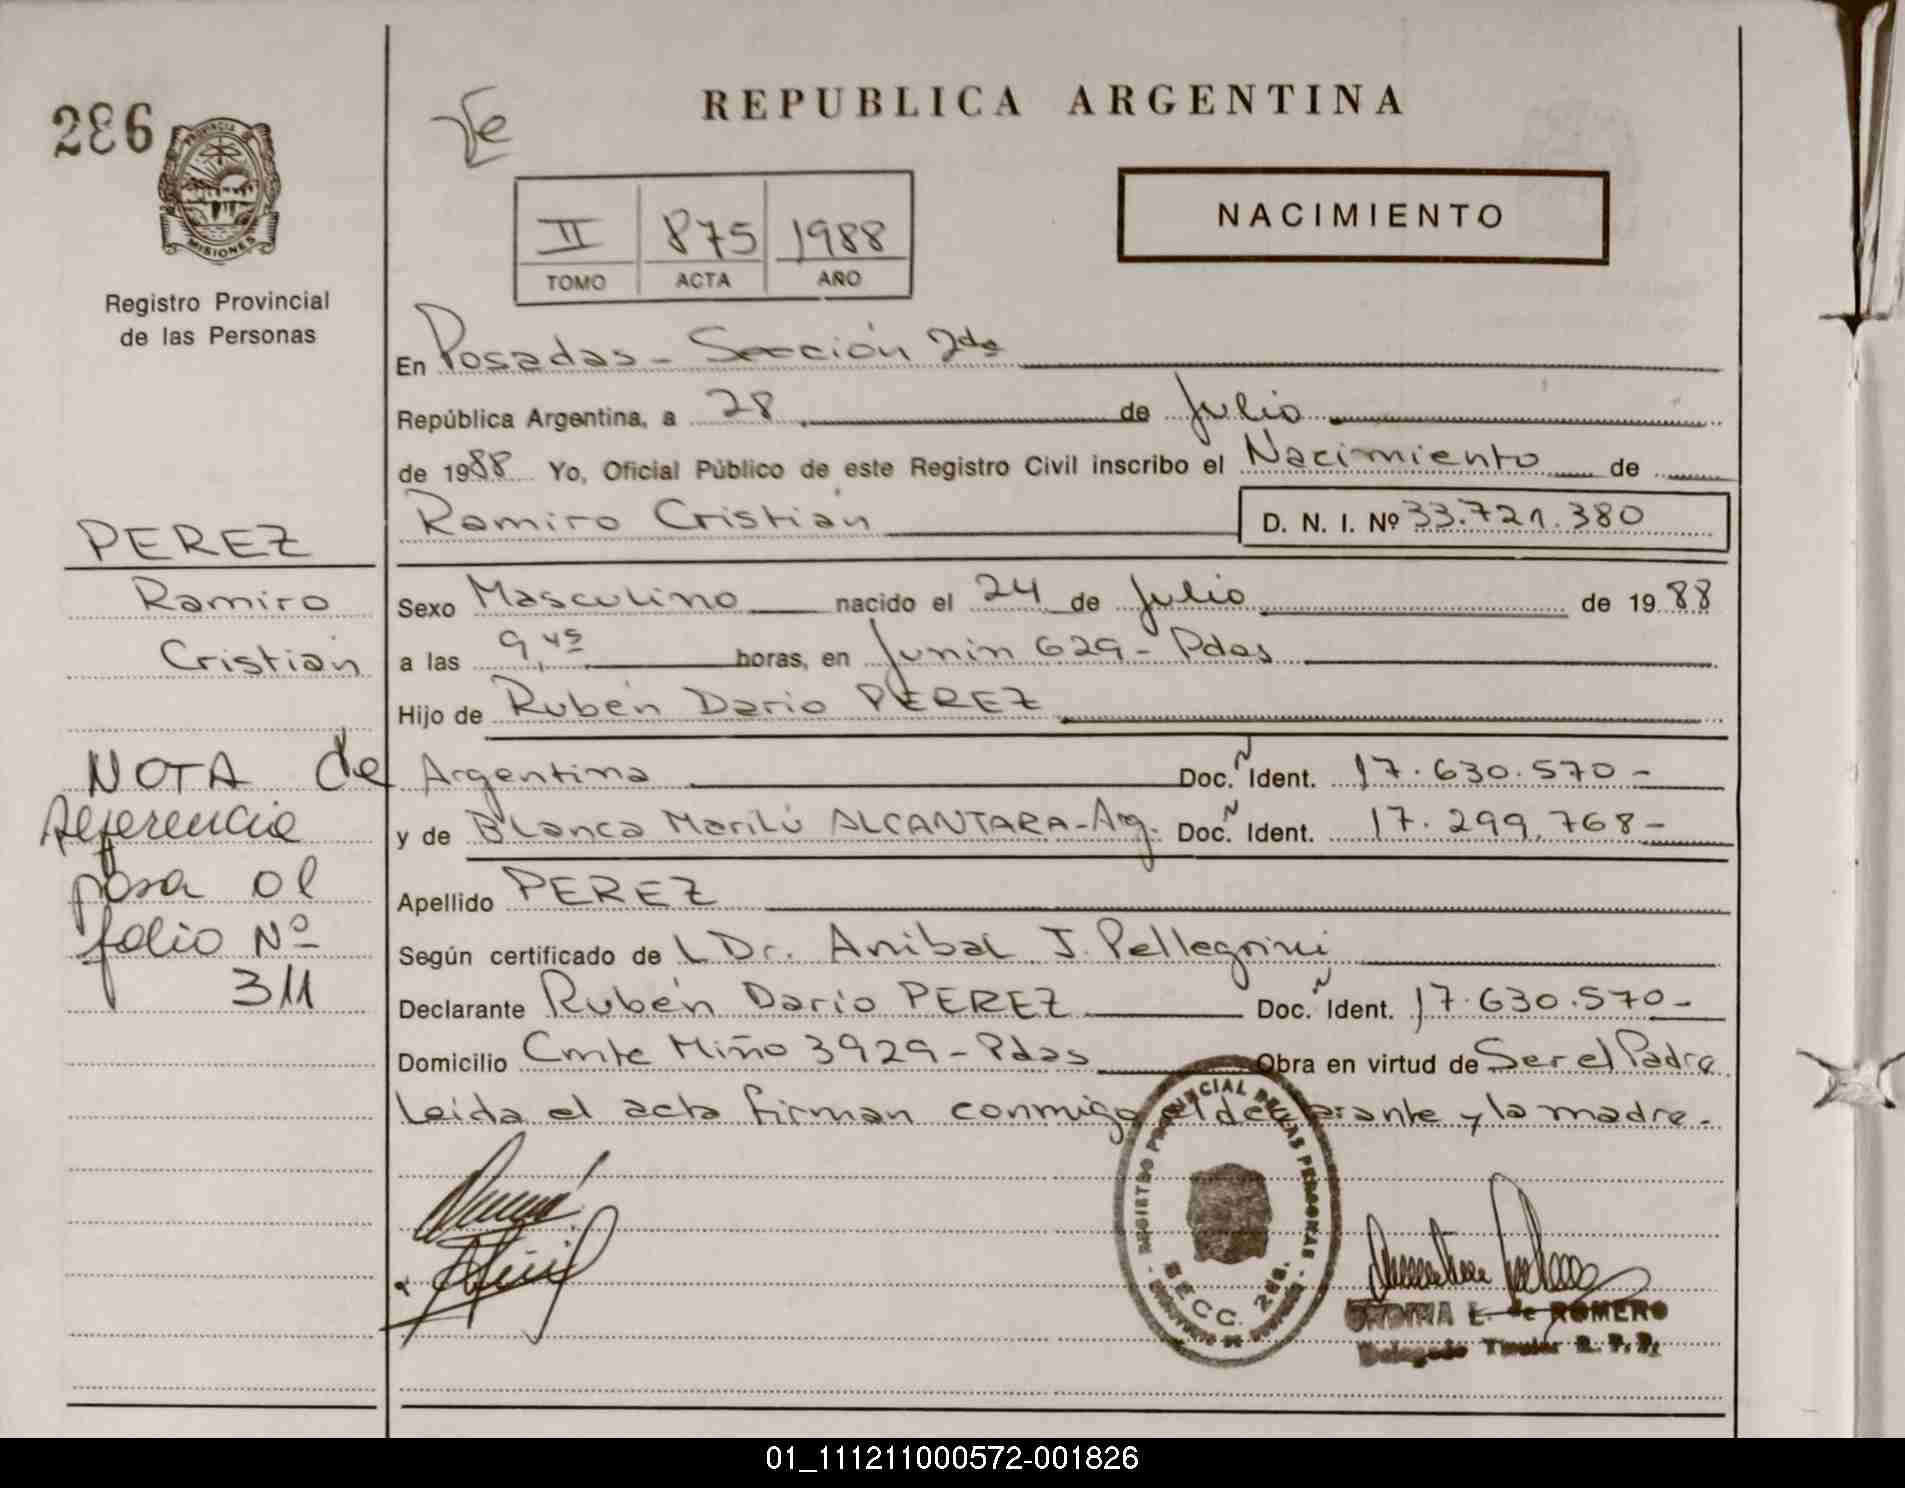 286
PROVINCIA DE
MISIONES
Registro Provincial
de las Personas
REPUBLICA ARGENTINA
NACIMIENTO
II 875 1988
TOMO ACTA AÑO
En Posadas - Sección 2da
República Argentina, a 28 de Julio
de 1988 Yo, Oficial Público de este Registro Civil inscribo el Nacimiento de
Ramiro Cristian D. N. I. Nº 33.721.380
PEREZ
Ramiro
Cristian
Sexo Masculino nacido el 24 de Julio de 1988
a las 9,45 horas, en Junin 629 - Pdas
Hijo de Rubén Dario PEREZ
Argentina Doc. N Ident. 17.630.570 -
y de Blanca Marilú ALCANTARA - Arg. Doc. N Ident. 17.299.768 -
Apellido PEREZ
Según certificado de L Dr. Anibal J. Pellegrini
Declarante Rubén Dario PEREZ Doc. N Ident. 17.630.570 -
Domicilio Cmte Miño 3929 - Pdas Obra en virtud de Ser el Padre
Leida el acta firman conmigo el declarante y la madre.
NOTA de
referencia
pasa al
folio Nº
311
REGISTRO PROVINCIAL DE LAS PERSONAS
SECC. 2da.
E. de ROMERO
Delegado Titular R. P. P.
01_111211000572-001826